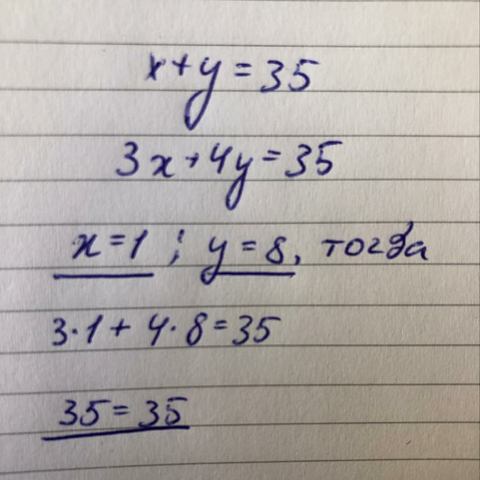 x+y=35
3x+4y=35
x=1; y=8, тогда
3·1+4·8=35
35=35